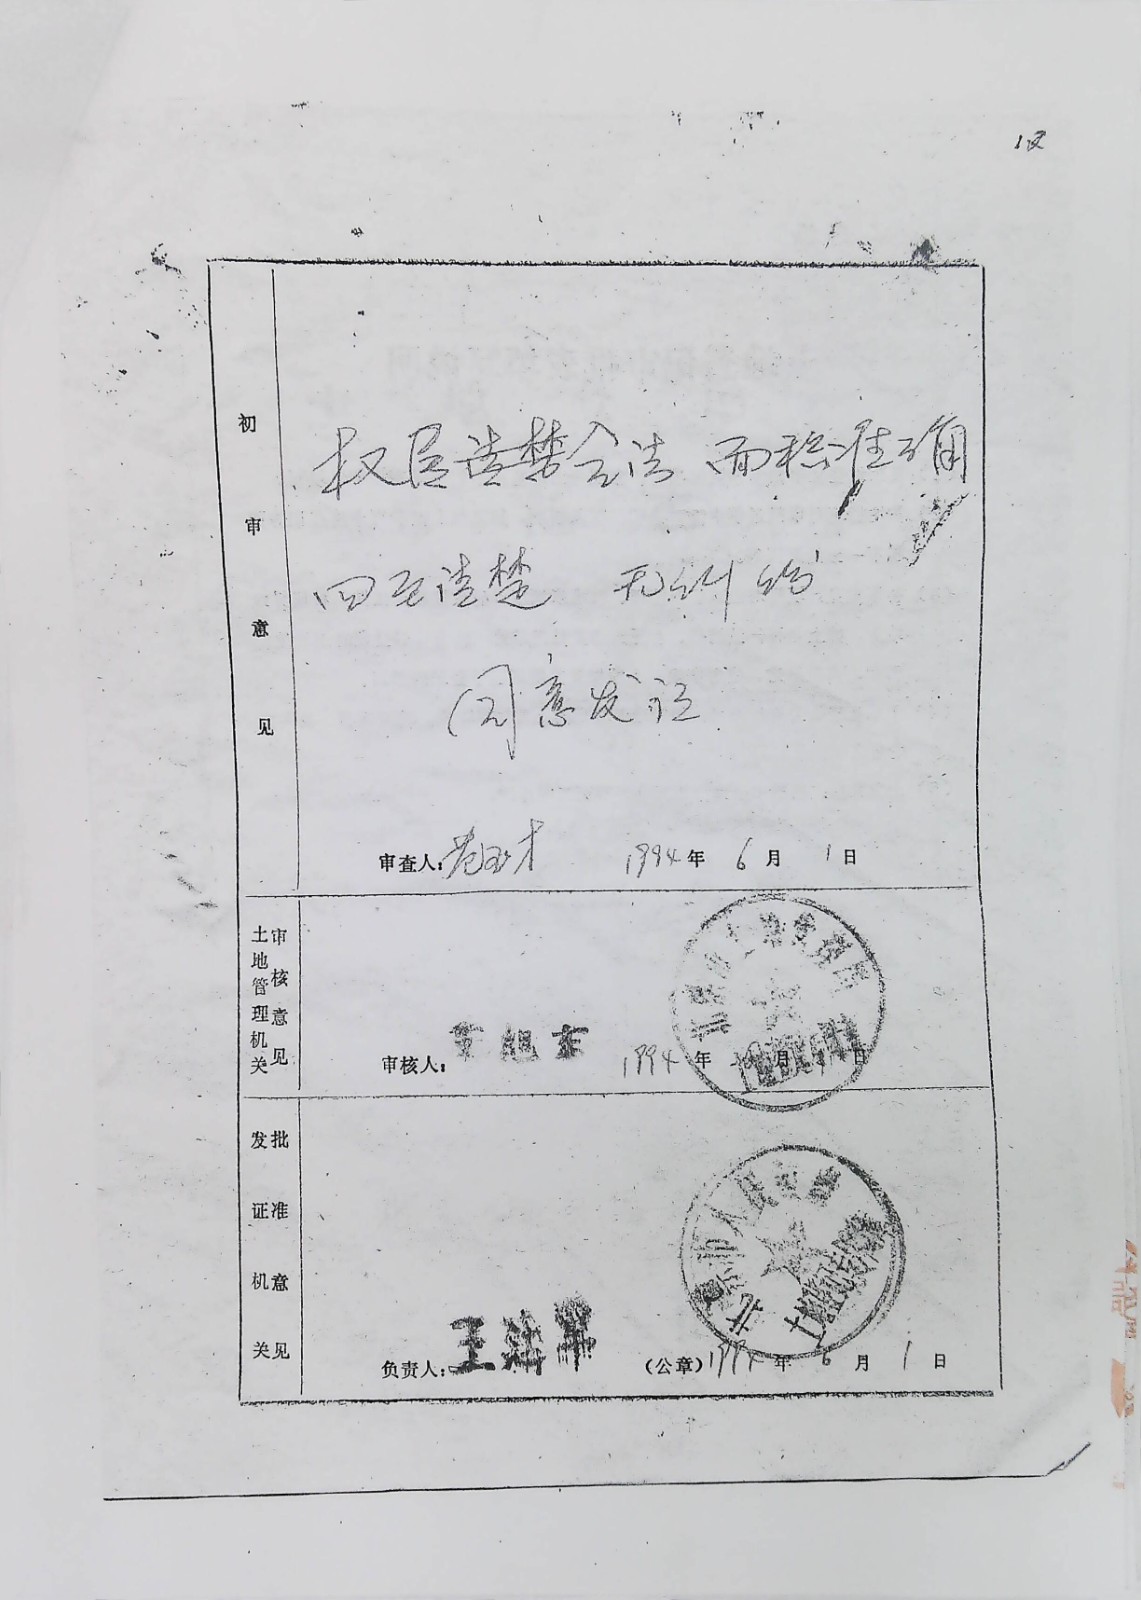 初审意见
权属清楚合法 面积准确
四至清楚 无纠纷
同意发证
审查人: 1994年6月1日
土地管理机关
审核意见
审核人: 1994年 月 日
发证机关
批准意见
负责人: (公章) 1994年6月1日